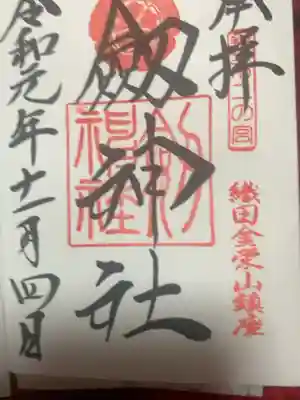 奉拝
二の宮
織田金栄山鎮座
劔神社
令和元年十一月四日